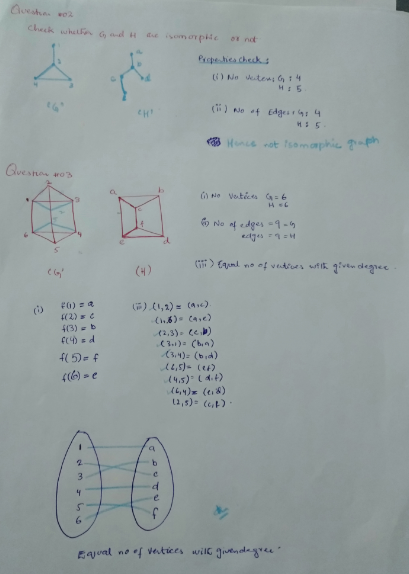 Question #02
Check whether G and H are isomorphic or not
Properties check :
(i) No vertices G : 4
H : 5
(ii) No of Edges : G : 4
H : 5
Hence not isomorphic graph
(G)
(H)
Question #03
(i) No vertices G = 6
H = 6
(ii) No of edges = 9 = G
edges = 9 = H
(iii) Equal no of vertices with given degree.
1
2
3
4
5
6
(G)
a
b
c
d
f
(H)
(i)
f(1) = a
f(2) = c
f(3) = b
f(4) = d
f(5) = f
f(6) = e
(ii) (1,2) = (a,c)
(1,6) = (a,e)
(2,3) = (c,b)
(3,1) = (b,a)
(3,4) = (b,d)
(6,5) = (e,f)
(4,5) = (d,f)
(6,4) = (e,d)
(2,5) = (c,f)
1
2
3
4
5
6
a
b
c
d
e
f
Equal no of vertices with given degree.